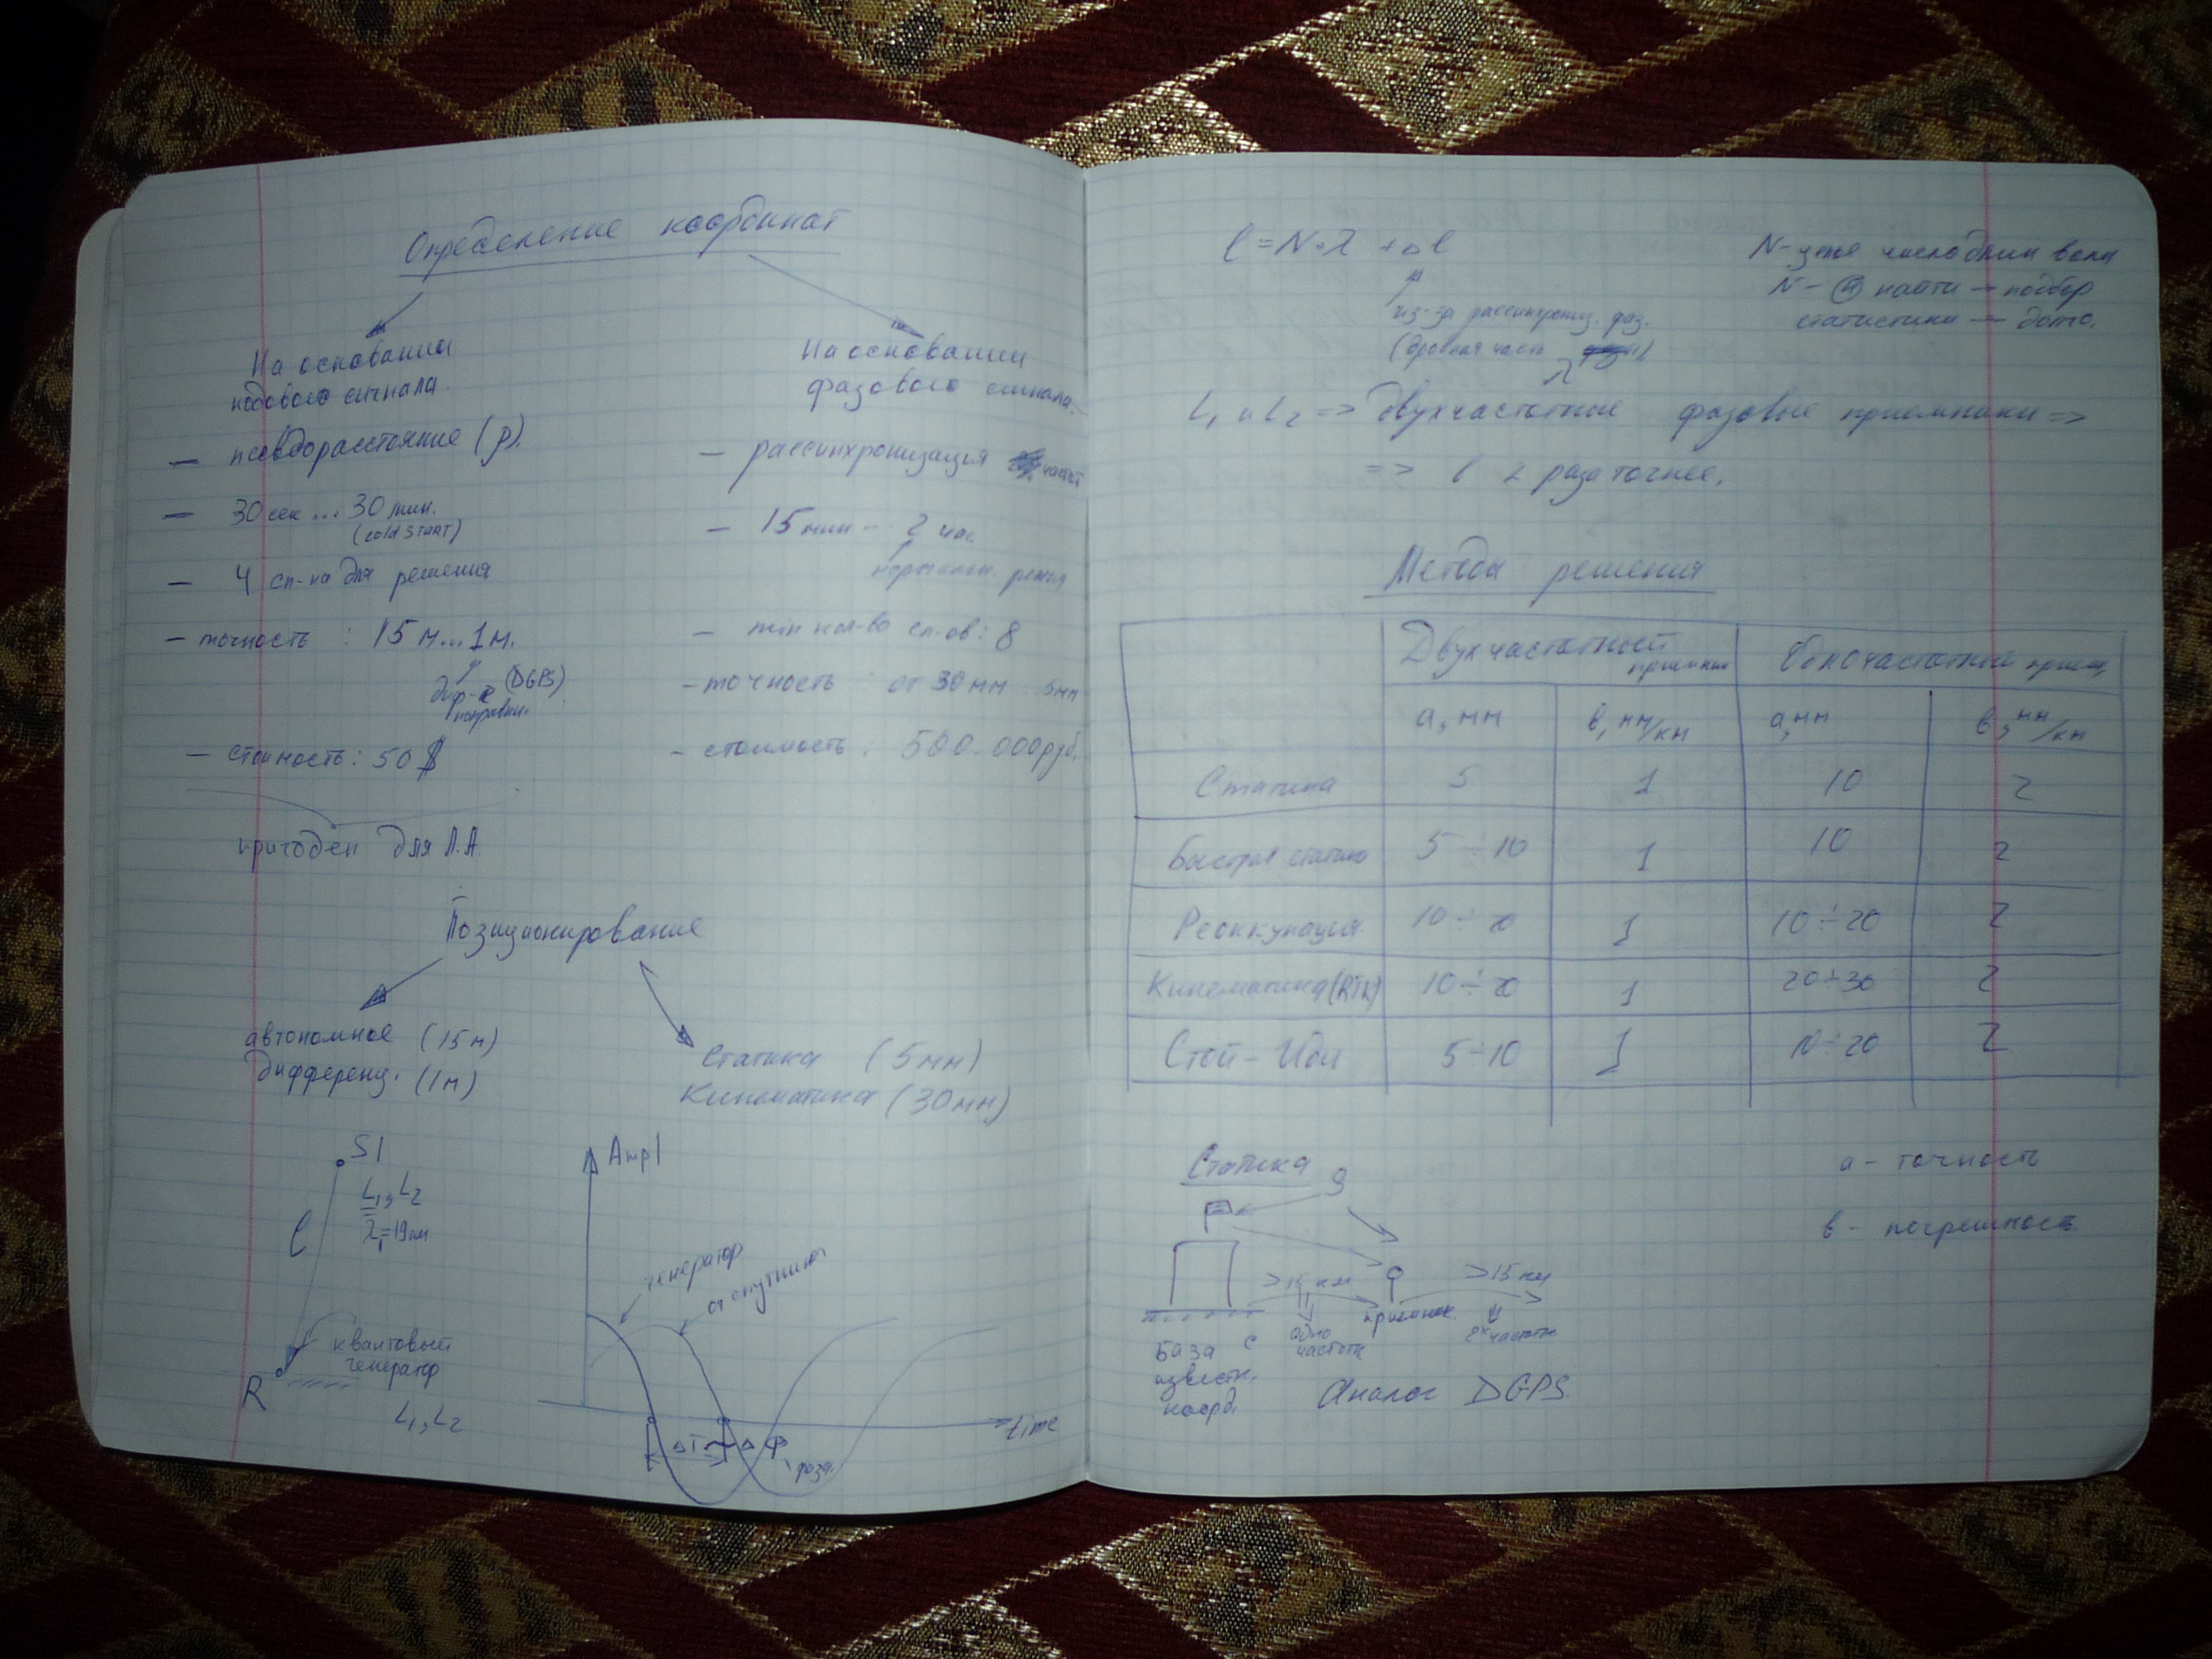 Определение координат
На основании
кодового сигнала.
— псевдорасстояние (р).
— 30 сек ... 30 мин.
(cold START)
— 4 сп-ка для решения
— точность : 15 м...1 м.
диф-е (DGPS)
поправки.
— стоимость: 50 $
пригоден для Л.А.
На основании
фазового сигнала.
— рассинхронизация частот
— 15 мин - 2 час.
нормальн. режим
— min кол-во сп-ов: 8
— точность : от 30 мм 5мм
— стоимость : 500.000 руб.
Позиционирование
автономное (15 м)
дифференц. (1 м)
Статика (5 мм)
Кинематика (30 мм)
S1
L1, L2
λ1=19см
l
квантовый
генератор
R
L1, L2
Ampl
генератор
от спутника
time
ΔT ~ Δφ
фаза.
l = N·λ + Δl
из-за рассинхрониз. фаз.
(дробная часть
λ
N- целое число длин волн
N- найти — подбор
статистики —
L1 и L2 => двухчастотные фазовые приемники =>
=> в 2 раза точнее.
Методы решения
Двухчастотный приемник Одночастотный прием.
а, мм в, мм/км а, мм в, мм/км
Статика 5 1 10 2
Быстрая статика 5÷10 1 10 2
Реоккупация 10÷20 1 10÷20 2
Кинематика (RTK) 10÷20 1 20÷30 2
Стой-Иди 5÷10 1 10÷20 2
Статика
S
а - точность
в - погрешность
>15 км
>15 км
приемник
одно
частотн
2х частотн
База с
известн.
коорд.
Аналог DGPS.